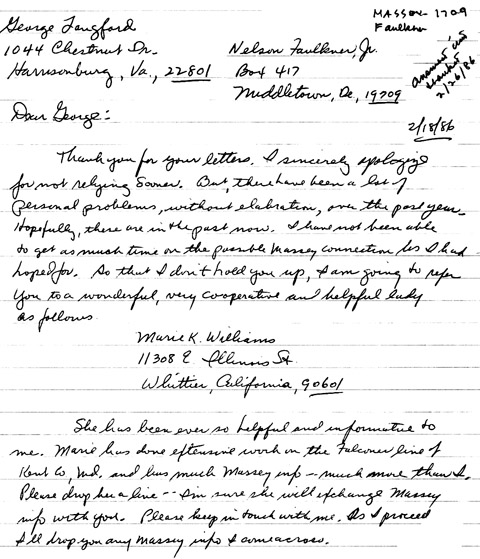 George Langford
1044 Chestnut Dr.
Harrisonburg, Va., 22801
MASSEY 1709
Faulkner
answered
2/26/86
Nelson Faulkner, Jr.
Box 417
Middletown, De, 19709
Dear George:
2/18/86
Thank you for your letters. I sincerely apologize
for not relying sooner. But, there have been a lot of
personal problems, without elabration, over the past year.
Hopefully, there are in the past now. I have not been able
to get as much time on the possible Massey connection as I had
hoped for. So that I don't hold you up, I am going to refer
you to a wonderful, very cooperative and helpful lady
as follows
Marie K. Williams
11308 E. Illinois St
Whittier, California, 90601
She has been ever so helpful and informative to
me. Marie has done extensive work on the Falconer line of
Kent Co, Md. and has much Massey info -- much more than I.
Please drop her a line -- I'm sure she will exchange Massey
info with you. Please keep in touch with me. As I proceed
I'll drop you any Massey info I come across.